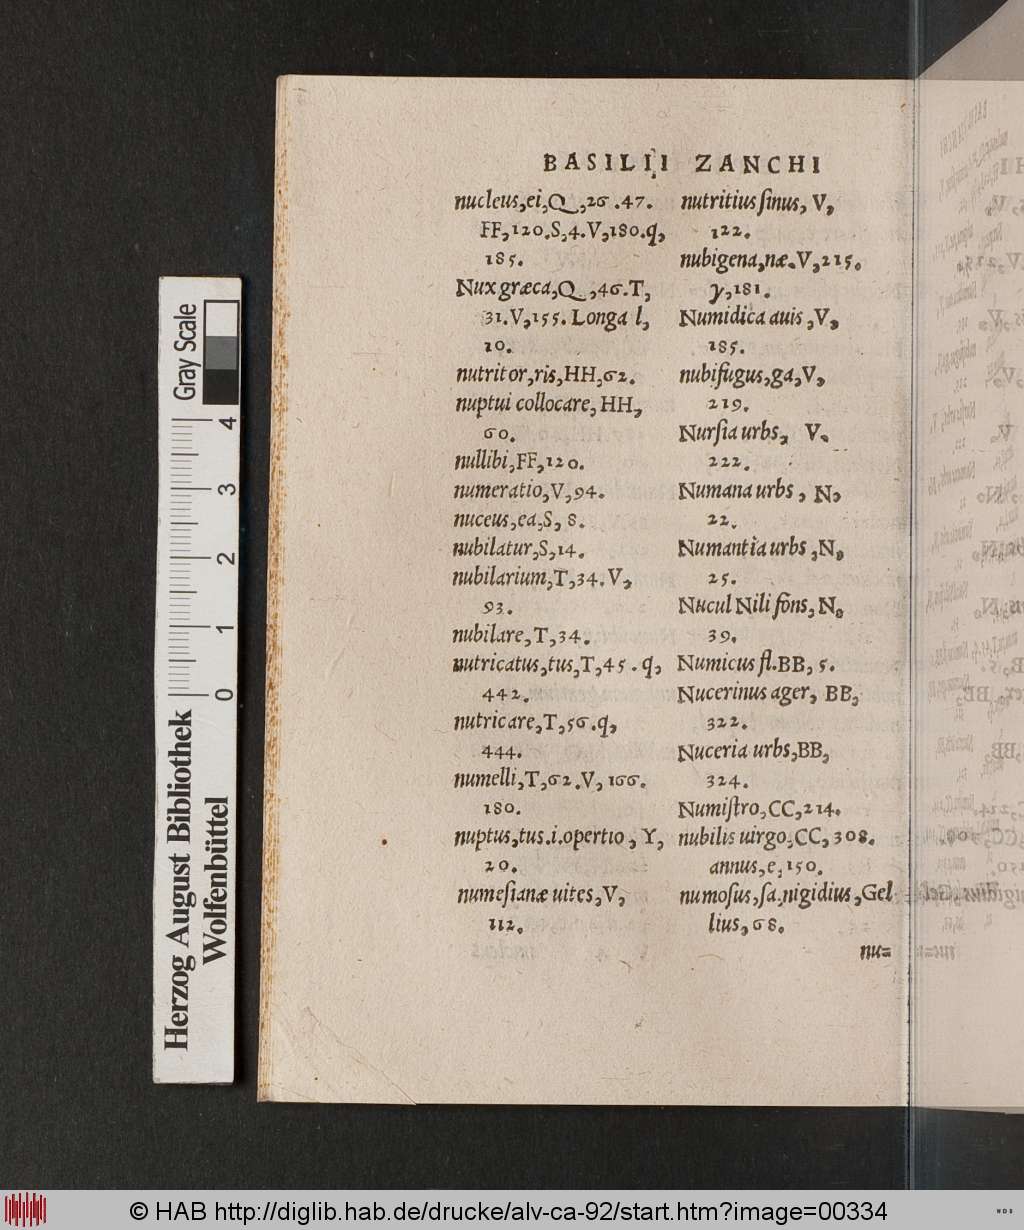 BASILII ZANCHI
nucleus,ei,Q,26.47.
FF,120.S,4.V,180.q,
185.
Nux græca,Q,46.T,
31.V,155.Longa l,
10.
nutritor,ris,HH,62.
nuptui collocare,HH,
60.
nullibi,FF,120.
numeratio,V,94.
nuceus,ea,S,8.
nubilatur,S,14.
nubilarium,T,34.V,
93.
nubilare,T,34.
nutricatus,tus,T,45.q,
442.
nutricare,T,56.q,
444.
numelli,T,62.V,166.
180.
nuptus,tus.i.opertio,Y,
20.
numeſianæ uites,V,
112.
nutritius ſinus, V,
122.
nubigena,næ.V,215.
y,181.
Numidica auis,V,
185.
nubifugus,ga,V,
219.
Nurſia urbs, V.
222.
Numana urbs, N,
22.
Numantia urbs,N,
25.
Nucul Nili fons, N,
39.
Numicus fl.BB, 5.
Nucerinus ager, BB,
322.
Nuceria urbs,BB,
324.
Numiſtro,CC,214.
nubilis uirgo,CC,308.
annus,e,150.
numoſus,ſa,nigidius,Gel
lius,68.
nu=
Herzog August Bibliothek
Wolfenbüttel
0 1 2 3 4
Gray Scale
© HAB http://diglib.hab.de/drucke/alv-ca-92/start.htm?image=00334
WDB